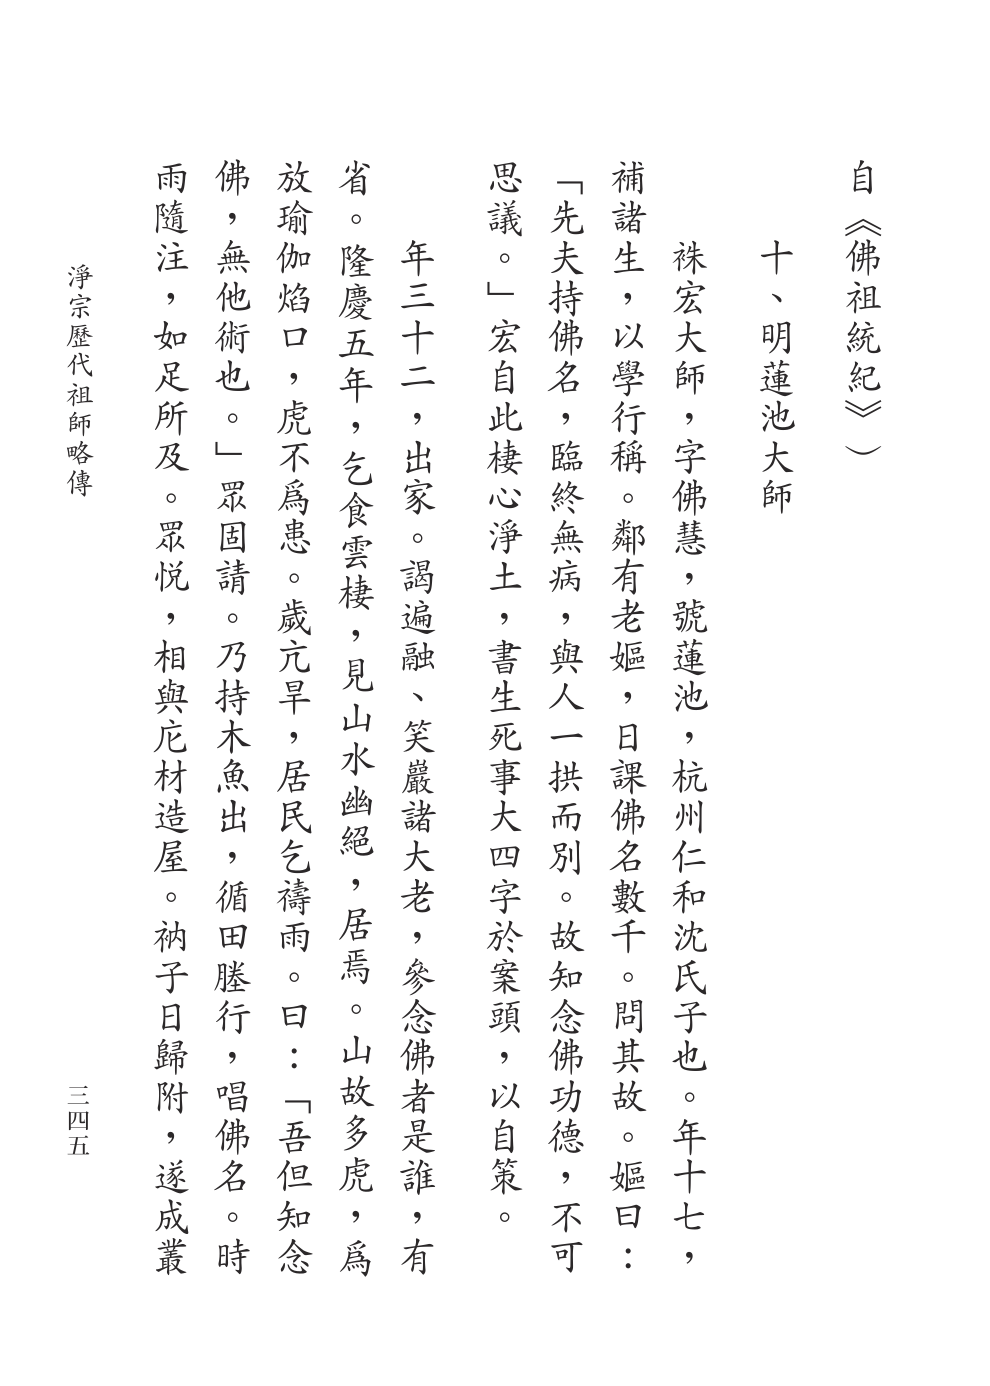 自《佛祖統紀》）
十、明蓮池大師
袾宏大師，字佛慧，號蓮池，杭州仁和沈氏子也。年十七，
補諸生，以學行稱。鄰有老嫗，日課佛名數千。問其故。嫗曰：
「先夫持佛名，臨終無病，與人一拱而別。故知念佛功德，不可
思議。」宏自此棲心淨土，書生死事大四字於案頭，以自策。
年三十二，出家。謁遍融、笑巖諸大老，參念佛者是誰，有
省。隆慶五年，乞食雲棲，見山水幽絕，居焉。山故多虎，爲
放瑜伽焰口，虎不爲患。歲亢旱，居民乞禱雨。曰：「吾但知念
佛，無他術也。」眾固請。乃持木魚出，循田塍行，唱佛名。時
雨隨注，如足所及。眾悅，相與庀材造屋。衲子日歸附，遂成叢
淨宗歷代祖師略傳
三四五